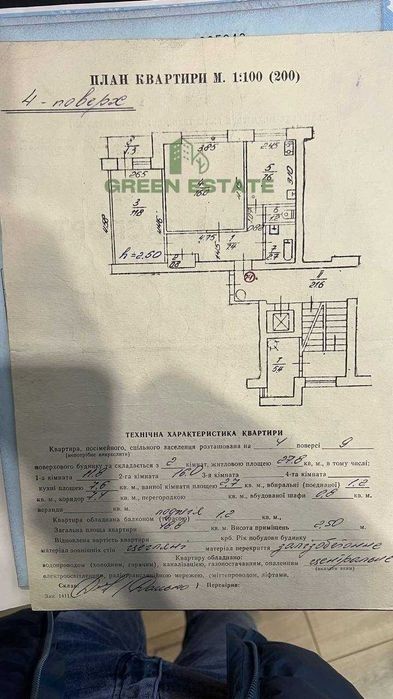 ПЛАН КВАРТИРИ М. 1:100 (200)
4 - поверх
GREEN ESTATE
2.65
3.65
2.45
3
11.8
4
16.0
5
7.6
3.10
6
1.2
7
2.7
4.75
1
7.4
h=2.50
0.8
II
21.6
I
5.4
ТЕХНІЧНА ХАРАКТЕРИСТИКА КВАРТИРИ
Квартира, посімейного, спільного заселення розташована на 4 поверсі 9
(непотрібне викреслити)
поверхового будинку та складається з 2 кімнат, житловою площею 27.8 кв. м., в тому числі:
1-а кімната 11.8 2-га кімната 16.0 3-а кімната 4-та кімната
кухні площею 7.6 кв. м., ванної кімнати площею 2.7 кв. м., вбиральні (поєднаної) 1.2
кв. м., коридор 7.4 кв. м., перегородкою кв. м., вбудованої шафи 0.8 кв. м.
веранди кв. м. лоджія 1.2 кв. м.
Квартира обладнана балконом (лоджією) кв. м.
Загальна площа квартири кв. м. Висота приміщень 2.50 м.
Відновлена вартість квартири крб. Рік побудови будинку
матеріал зовнішніх стін цегляні матеріал перекриття залізобетонне
Квартиру обладнано:
водопроводом (холодним, гарячим), каналізацією, газопостачанням, опаленням центральне
електроосвітленням, радіотрансляційною мережею, сміттєпроводом, ліфтами,
(вказати яким)
Склав: Перевірив: